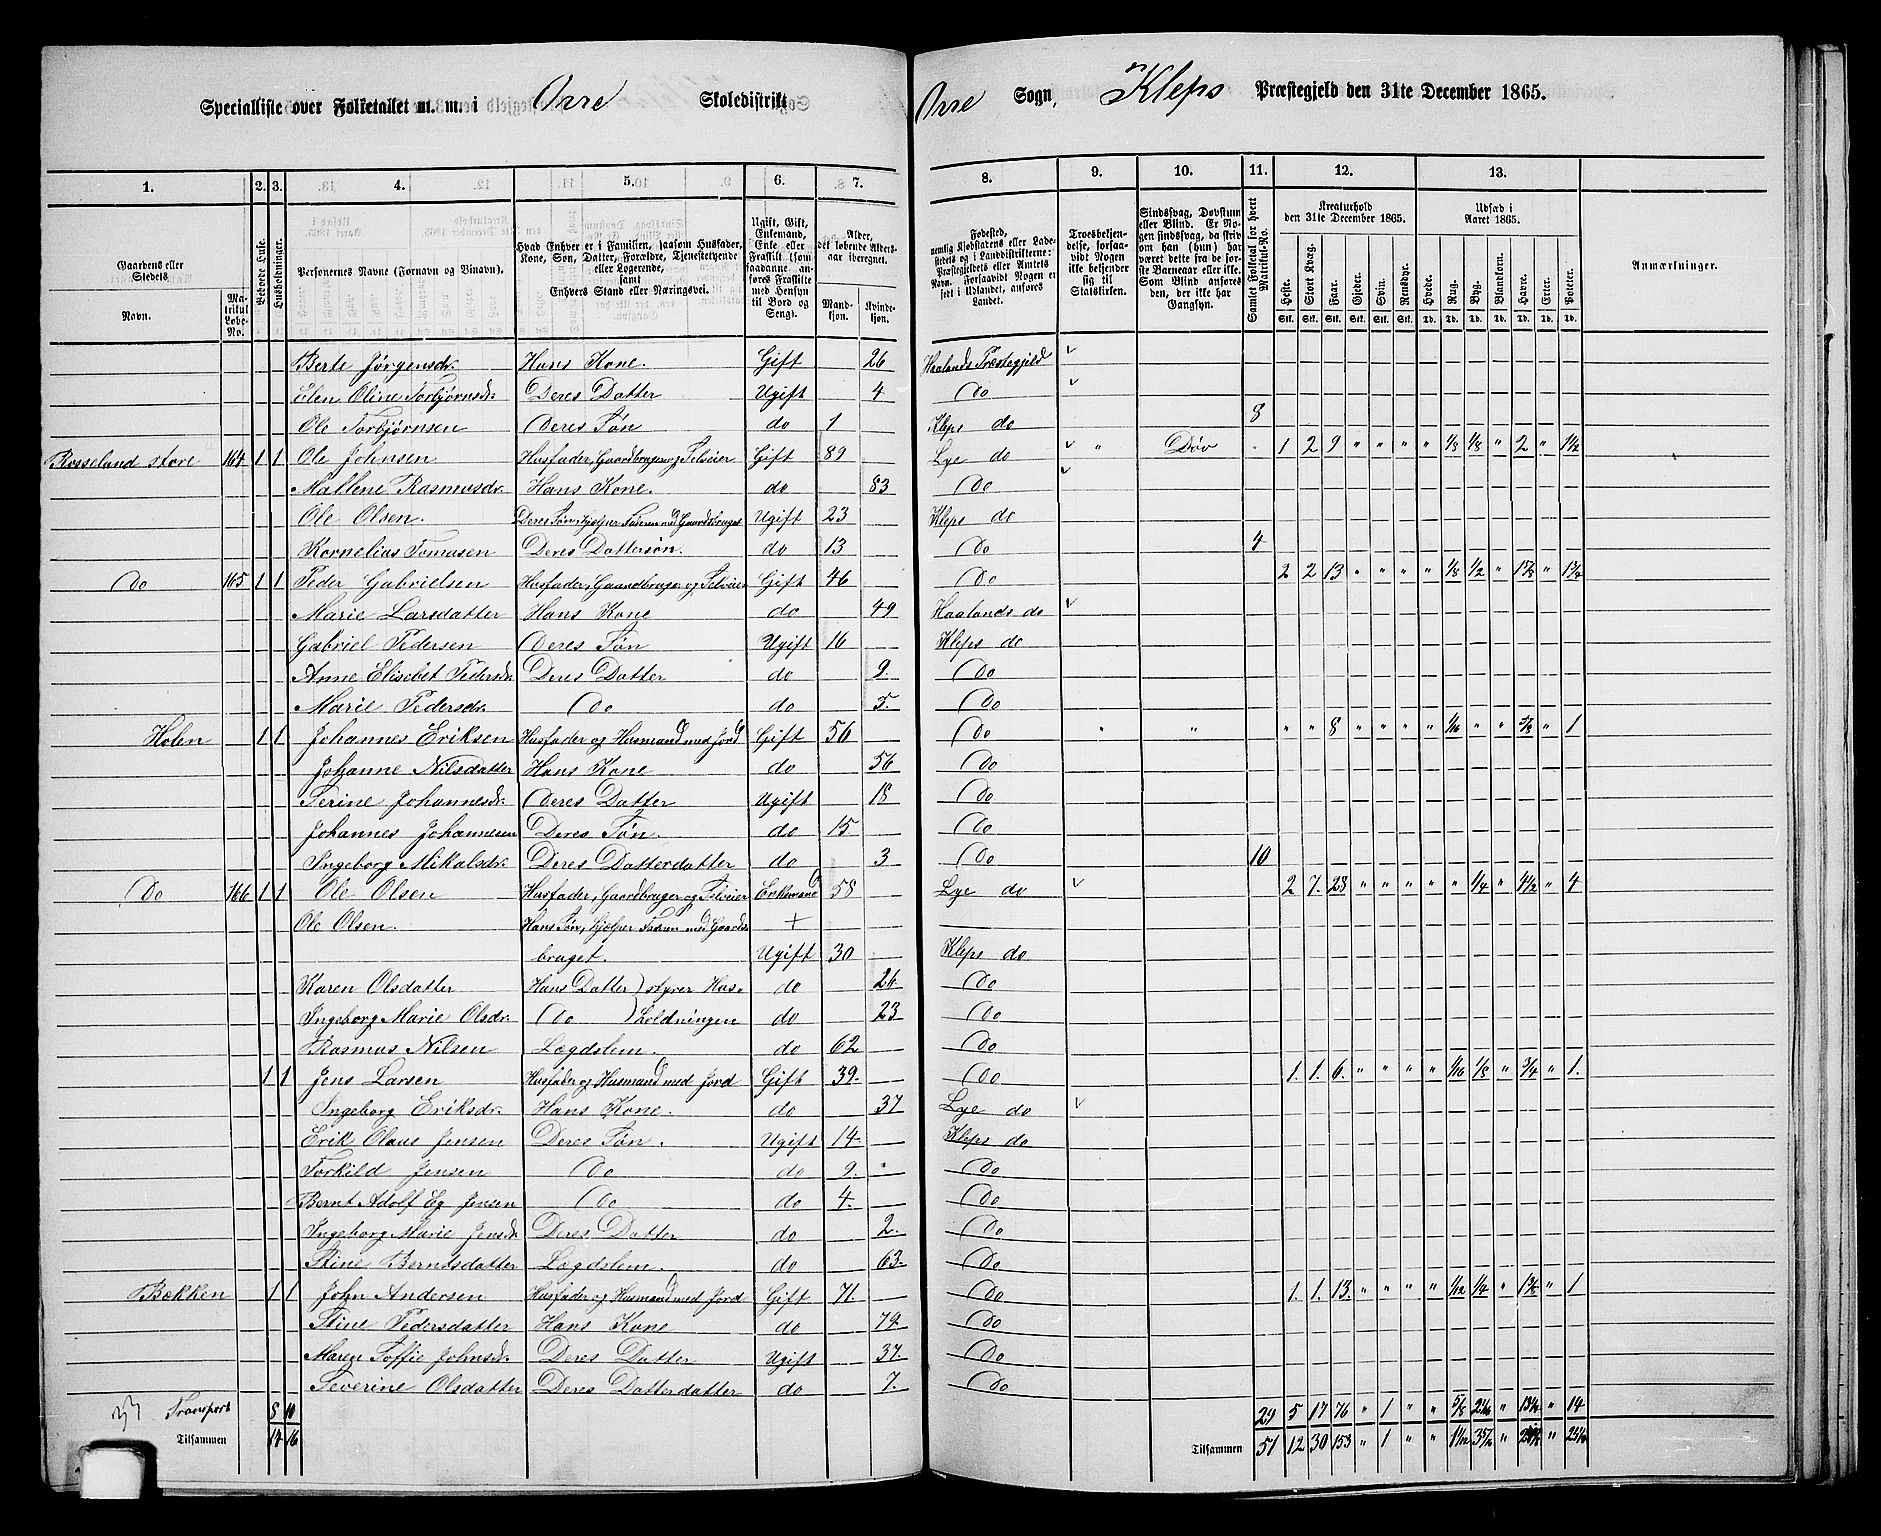 Specialliste over Folketallet m. m. i Orre Skoledistrikt Orre Sogn, Kleps Præstegjeld den 31te December 1865.
1. 2. 3. 4. 5. 6. 7. 8. 9. 10. 11. 12. 13.
Gaardens eller Stedets Navn. Matrikul Løbe-No. Beboede Huse. Husholdninger. Personernes Navne (Fornavn og Binavn). Hvad Enhver er i Familien, saasom Husfader, Kone, Søn, Datter, Forældre, Tjenestetyende eller Logerende, samt Enhvers Stand eller Næringsvei. Ugift, Gift, Enkemand, Enke eller Fraskilt (som saadanne anføres Fraskilte med Hensyn til Bord og Seng). Alder, det løbende Alders-aar iberegnet. Mandkjøn. Kvindekjøn. Fødested, nemlig Kjøbstadens eller Ladestedets og i Landdistrikterne: Præstegjeldets eller Amtets Navn. Forsaavidt Nogen er født i Udlandet, anføres Landet. Troesbekjendelse, forsaavidt Nogen ikke bekjender sig til Statskirken. Sindssvag, Døvstum eller Blind. Er Nogen sindssvag, da skrives om han (hun) har været dette fra de første Barneaar eller ikke. Som Blind anføres den, der ikke har Gangsyn. Samlet Folketal for hvert Matrikul-No. Kreaturhold den 31te December 1865. Udsæd i Aaret 1865. Anmærkninger.
Heste. Stort Kvæg. Faar. Gjeder. Svin. Rensdyr. Hvede. Rug. Byg. Blandkorn. Havre. Erter. Poteter.
Stk. Stk. Stk. Stk. Stk. Stk. Td. Td. Td. Td. Td. Td. Td.
Berte Jørgensdr. Hans Kone. Gift 26 Haalands Præstegjeld
Elen Oline Torbjørnsdr. Deres Datter Ugift 4 Do
Ole Torbjørnsen Deres Søn do 1 Kleps do 8
Rosseland store 164 1 1 Ole Johnsen Husfader, Gaardbruger og Selveier Gift 89 Lye do " Døv " 1 2 9 " " " " 1/8 1/8 " 2 " 1 1/2
Mallene Rasmusdr. Hans Kone. do 83 Do
Ole Olsen. Deres Søn, hjelper Faderen med Gaardsbruget Ugift 23 Kleps do
Kornelius Tomasen Deres Dattersøn. do 13 Do 4
Do 165 1 1 Peder Gabrielsen Husfader, Gaardbruger og Selveier Gift 46 Do 2 2 13 " " " " 1/8 1/2 " 1 7/8 " 1 3/4
Marie Larsdatter Hans Kone do 49 Haalands do
Gabriel Pedersen Deres Søn Ugift 16 Kleps do
Anne Elisebet Pedersdr. Deres Datter do 9. Do
Marie Pedersdr. Do do 5. Do
Holen 1 1 Johannes Eriksen Husfader og Husmand med Jord Gift 56 Do " " " " 8 " " " " 1/16 " " " 1
Johanne Nilsdatter Hans Kone do 56 Do
Serine Johannesdr. Deres Datter Ugift 18 Do
Johannes Johannesen Deres Søn. do 15 Do
Ingeborg Mikalsdr. Deres Datterdatter do 3 Do 10
Do 166 1 1 Ole Olsen Husfader, Gaardbruger og Selveier Enkemand 58 Lye do 2 7. 28 " " " " " 1/4 " 4 1/2 " 4
Ole Olsen. Hans Søn, hjelper Faderen med Gaards- +
bruget. Ugift 30 Kleps do
Karen Olsdatter Hans Datter ) styrer Hus- do 26 Do
Ingeborg Marie Olsdr. Do ) holdningen do 23 Do
Rasmus Nilsen Lægdslem. do 62 Do
1 1 Jens Larsen Husfader og Husmand med Jord Gift 39. Do 1. 1. 6. " " " " 1/16 1/8 " 3/4 " 1.
Ingeborg Eriksdr. Hans Kone. do 37 Lye do
Erik Olaus Jensen Deres Søn. Ugift 14. Kleps do
Torkild Jensen Do do 9. Do
Bernt Adolf Eg Jensen Do do 4. Do
Ingeborg Marie Jensdr. Deres Datter do 2. Do
Stine Berntsdatter Lægdslem. do 63. Do
Bækken 1 1 John Andersen Husfader og Husmand med Jord Gift 71. Do 1. 1. 13. " " " " 1/12 1/4 " " 1
Stine Pedersdatter Hans Kone do 79. Do
Maren Soffie Johnsdr. Deres Datter Ugift 37. Do
Severine Olsdatter Deres Datterdatter do 7. Do
33 Transport 8 10 29 5 17 76 " 1 " " 5/8 " " 14
Tilsammen 14 16 Tilsammen 51 12 30 153 " 1 " " " "